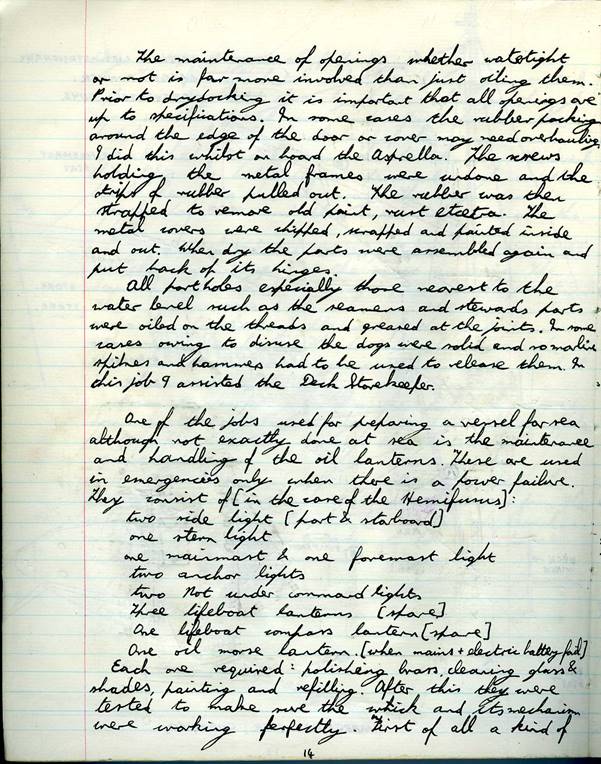 The maintenance of openings whether watertight
or not is far more involved than just oiling them.
Prior to drydocking it is important that all openings are
up to specifications. In some cases the rubber packing
around the edge of the door or cover may need overhauling
I did this whilst on board the Asprella. The screws
holding the metal frames were undone and the
strips of rubber pulled out. The rubber was then
scrapped to remove old paint, rust etcetra. The
metal covers were chipped, scrapped and painted inside
and out. When dry the parts were assembled again and
put back of its hinges.
All portholes especially those nearest to the
water level such as the seamens and stewards ports
were oiled on the threads and greased at the joints. In some
cases owing to disuse the dogs were solid and so marline
spikes and hammers had to be used to release them. In
this job I assisted the Deck Storekeeper.
One of the jobs used for preparing a vessel for sea
although not exactly done at sea is the maintenance
and handling of the oil lanterns. These are used
in emergencies only when there is a power failure.
They consist of [in the case of the Hemifusus]:
two side light [port & starboard]
one stern light
one mainmast & one foremast light
two anchor lights
two Not under command lights
Three lifeboat lanterns [spare]
One lifeboat compass lantern [spare]
One oil morse lantern. [when mains + electric battery fail]
Each one required: polishing brass, cleaning glass &
shades, painting and refilling. After this they were
tested to make sure the wick and its mechanism
were working perfectly. First of all a kind of
14